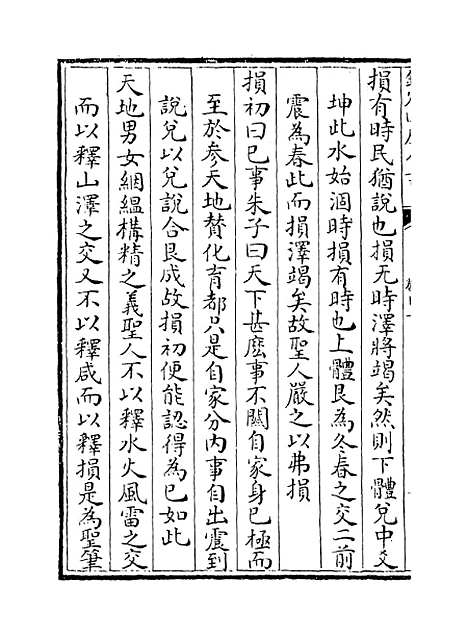 損有時民猶說也損无時澤將竭矣然則下體兌中爻
坤此水始涸時損有時也上體艮為冬春之交二前
震為春此而損澤竭矣故聖人嚴之以弗損
損初曰已事朱子曰天下甚麼事不關自家身已極而
至於參天地賛化育都只是自家分内事自出震到
說兌以兌說合艮成故損初便能認得為已如此
天地男女絪縕構精之義聖人不以釋水火風雷之交
而以釋山澤之交又不以釋咸而以釋損是為聖筆